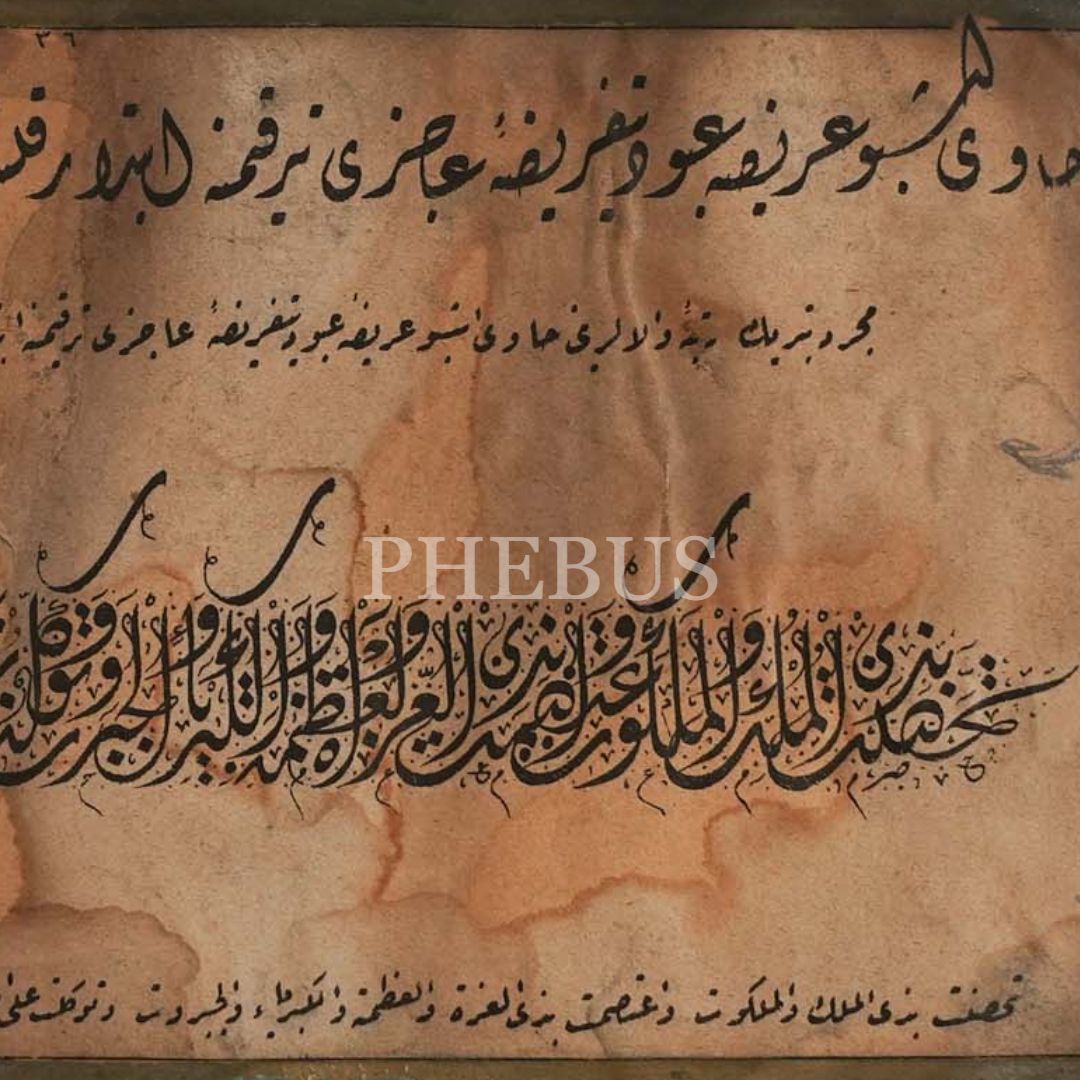 ٣٦
حاوی اشبو عریضه عبودیتفریضهٔ عاجزی ترقیمنه ابتدار
مجرد تبریك رتبهٔ والالرینی حاوی اشبو عریضهٔ عبودیتفریضهٔ عاجزی ترقیمنه
PHEBUS
تحصنت بذی الملك والملكوت واعتصمت بذی العزة والعظمة والكبریاء والجبروت وتوكلت
تحصنت بذی الملك والملكوت واعتصمت بذی العزة والعظمة والكبریاء والجبروت وتوكلت علی